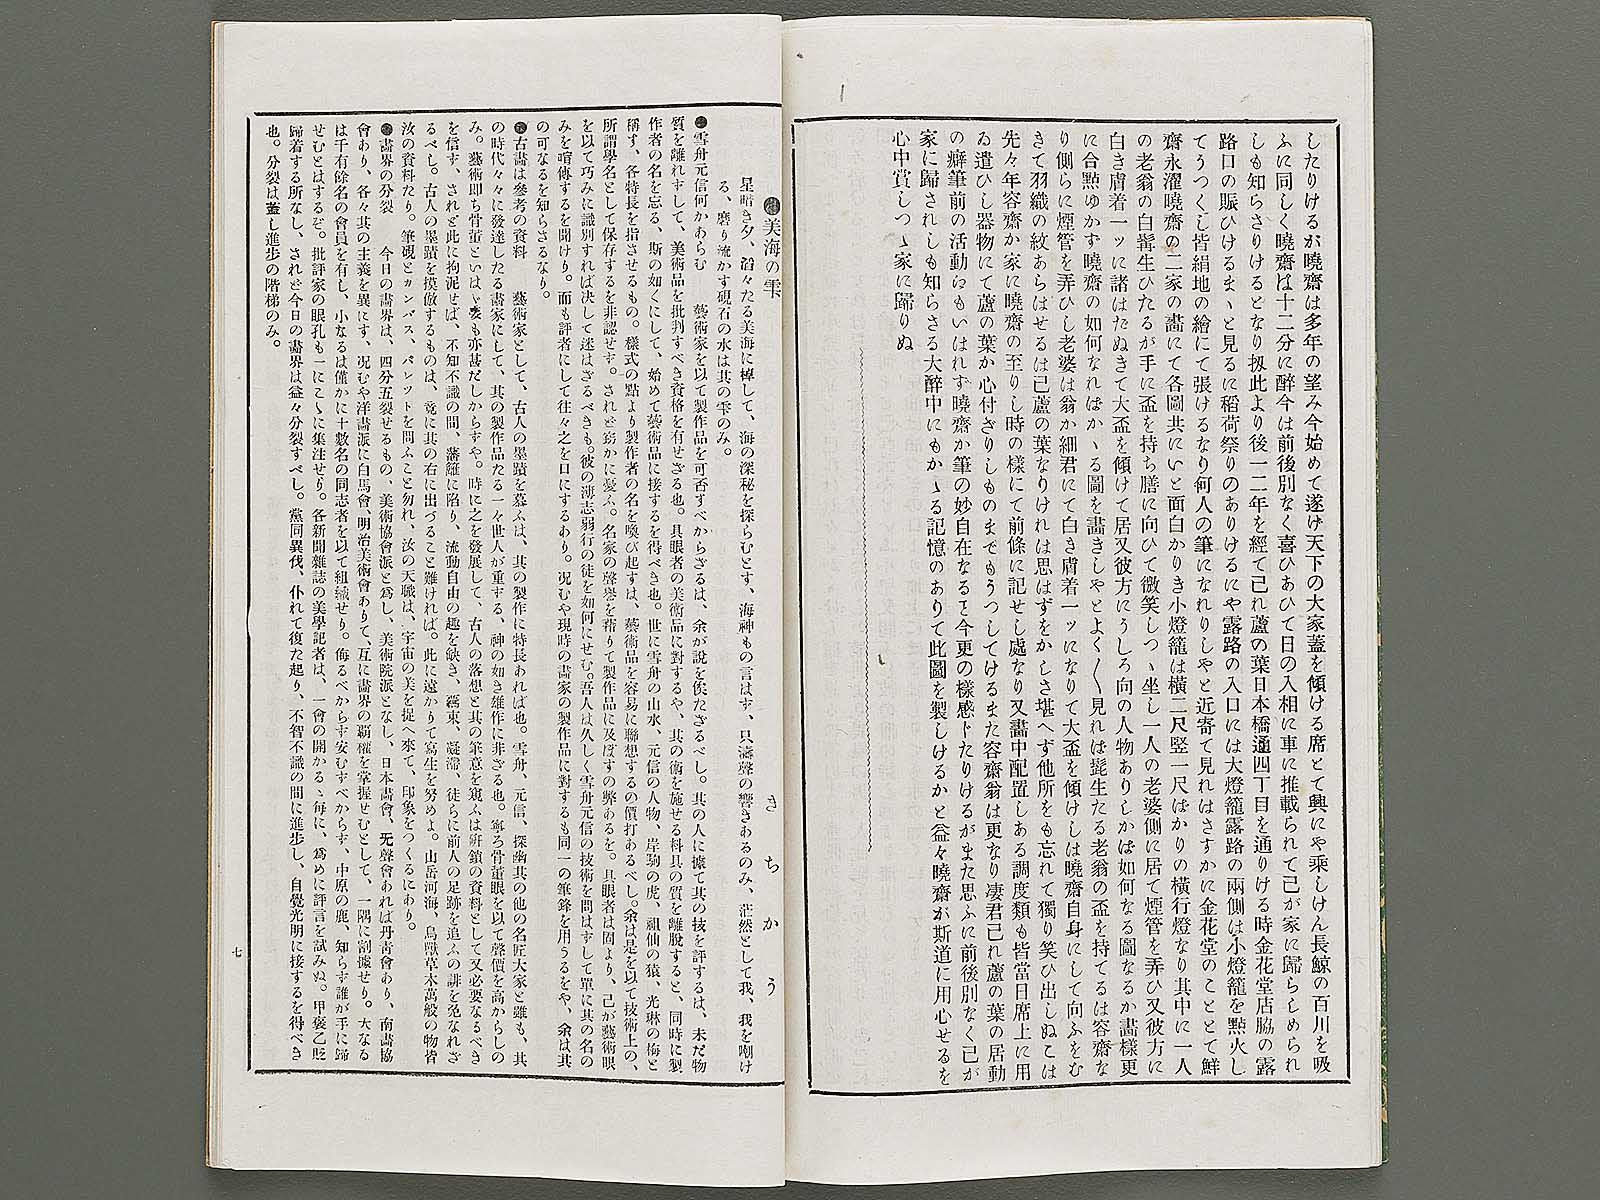 したりけるが曉齋は多年の望み今始めて遂け天下の大家蓋を傾ける席とて興にや乘しけん長鯨の百川を吸
ふに同しく曉齋は十二分に醉今は前後別なく喜ひあひて日の入相に車に推載られて己が家に歸らしめられ
しも知らさりけるとなり扨此より後一二年を經て己れ蘆の葉日本橋通四丁目を通りける時金花堂店脇の露
路口の賑ひけるまゝと見るに稻荷祭りのありけるにや露路の入口には大燈籠露路の兩側は小燈籠を㸃火し
てうつくし皆絹地の繪にて張けるなり何人の筆になれりしやと近寄て見れはさすかに金花堂のこととて鮮
齋永濯曉齋の二家の畵にて各圖共にいと面白かりき小燈籠は橫二尺竪一尺ばかりの橫行燈なり其中に一人
の老翁の白髯生ひたるが手に盃を持ち膳に向ひて微笑しつゝ坐し一人の老婆側に居て煙管を弄ひ又彼方に
白き膚着一ッに諸はたぬきて大盃を傾けて居又彼方にうしろ向の人物ありしかば如何なる圖なるか畵樣更
に合㸃ゆかず曉齋の如何なればかゝる圖を畵きしやとよく〱見れば髭生たる老翁の盃を持てるは容齋な
り側らに煙管を弄ひし老婆は翁か細君にて白き膚着一ッになりて大盃を傾けしは曉齋自身にして向ふをむ
きて羽織の紋あらはせるは己蘆の葉なりければ思はずをかしさ堪へず他所をも忘れて獨り笑ひ出しぬこは
先々年容齋か家に曉齋の至りし時の樣にて前條に記せし處なり又畵中配置しある調度類も皆當日席上に用
ゐ遣ひし器物にて蘆の葉か心付ざりしものまでもうつしてけるまた容齋翁は更なり凄君己れ蘆の葉の居動
の癖筆前の活動にもいはれず曉齋か筆の妙自在なると今更の樣感トたりけるがまた思ふに前後別なく己が
家に歸されしも知らさる大醉中にもかゝる記憶のありて此圖を製しけるかと益々曉齋が斯道に用心せるを
心中賞しつゝ家に歸りぬ
●美海の雫
きちかう
星暗き夕、滔々たる美海に棹して、海の深秘を探らむとす、海神もの言はす、只濤聲の響きあるのみ、茫然として我、我を嘲け
る、磨り流かす硯石の水は其の雫のみ。
●雪舟元信何かあらむ　藝術家を以て製作品を可否すべからざるは、余が說を俟たざるべし。其の人に據て其の技を評するは、未だ物
質を離れずして、美術品を批判すべき資格を有せざる也。具眼者の美術品に對するや、其の術を施せる科具の質を離脫すると、同時に製
作者の名を忘る、斯の如くにして、始めて藝術品に接するを得べき也。世に雪舟の山水、元信の人物、岸駒の虎、祖仙の猿、光琳の梅と
稱す、各特長を指させるもの。樣式の點より製作者の名を喚び起すは、藝術品を容易に聯想するの價打あるべし。余は是を以て技術上の、
所謂學名として保存するを非認せず。されど窃かに憂ふ。名家の聲譽を藉りて製作品に及ぼすの弊あるを。具眼者は固より、己が藝術眼
を以て巧みに識別すれば決して迷はざるべきも。彼の薄志弱行の徒を如何にせむ。吾人は久しく雪舟元信の技術を問はずして單に其の名の
みを喧傳するを聞けり。而も評者にして往々之を口にするあり。况むや現時の畵家の製作品に對するも同一の筆鋒を用うるをや、余は其
の可なるを知らさるなり。
●古畵は參考の資料　藝術家として、古人の墨蹟を慕ふは、其の製作に特長あれば也。雪舟、元信、探幽其の他の名匠大家と雖も、其
の時代々々に發達したる畵家にして、其の製作品たる一々世人が重する、神の如き雄作に非ざる也。寧ろ骨董眼を以て聲價を高からしの
み。藝術即ち骨董といはゞ褒も亦甚だしからずや。時に之を發展して、古人の落想と其の筆意を窺ふは硏鎖の資料として又必要なるべき
を信す、されど此に拘泥せば、不知不識の間、藩籬に陷り、流動自由の趣を缺き、覊束、凝滯、徒らに前人の足跡を追ふの誹を免なれざ
るべし。古人の墨蹟を摸倣するものは、竟に其の右に出づること難ければ。此に遠かりて寫生を努めよ。山岳河海、鳥獸草木萬般の物皆
汝の資料たり。筆硯とカンバス、パレットを問ふこと勿れ、汝の天職は、宇宙の美を捉へ來て、印象をつくるにあり。
●畵界の分裂　今日の畵界は、四分五裂せるもの、美術協會派と爲し、美術院派となし、日本畵會、无聲會あれば丹靑會あり、南畵協
會あり、各々其の主義を異にす、况むや洋畵派に白馬會、明治美術會ありて、互に畵界の覇權を掌握せむとして、一隅に割據せり。大なる
は千有餘名の會員を有し、小なるは僅かに十數名の同志者を以て組織せり。侮るべからす安むすべからす、中原の鹿、知らす誰が手に歸
せむとはするぞ。批評家の眼孔も一にこゝに集注せり。各新聞雜誌の美學記者は、一會の開かるゝ每に、爲めに評言を試みぬ。甲褒乙貶
歸着する所なし、されど今日の畵界は益々分裂すべし。黨同異伐、仆れて復た起り、不智不識の間に進步し、自覺光明に接するを得べき
也。分裂は蓋し進步の階梯のみ。
七